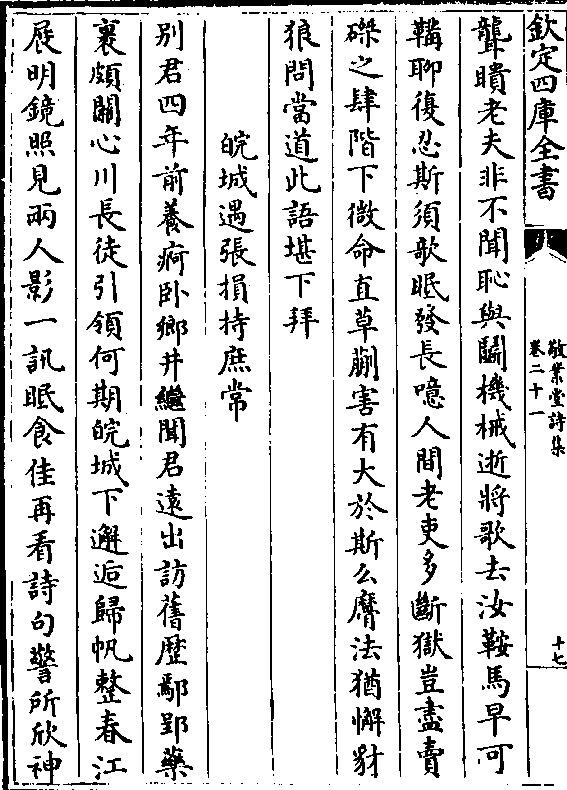 欽定四庫全書
敬業堂詩集
卷二十一
十七
聾瞶老夫非不聞恥與鬭機械逝將歌去汝鞍馬早可
鞲聊復忍斯須歌眠發長噫人間老吏多斷獄豈盡賣
磔之肆階下微命直草蒯害有大於斯么麿法猶懈豺
狼問當道此語堪下拜
皖城遇張損持庶常
别君四年前養疴卧鄉井繼聞君遠出訪舊歴鄢郢藥
裹頗關心川長徒引領何期皖城下邂逅歸帆整春江
展明鏡照見兩人影一訊眠食佳再看詩句警所欣神